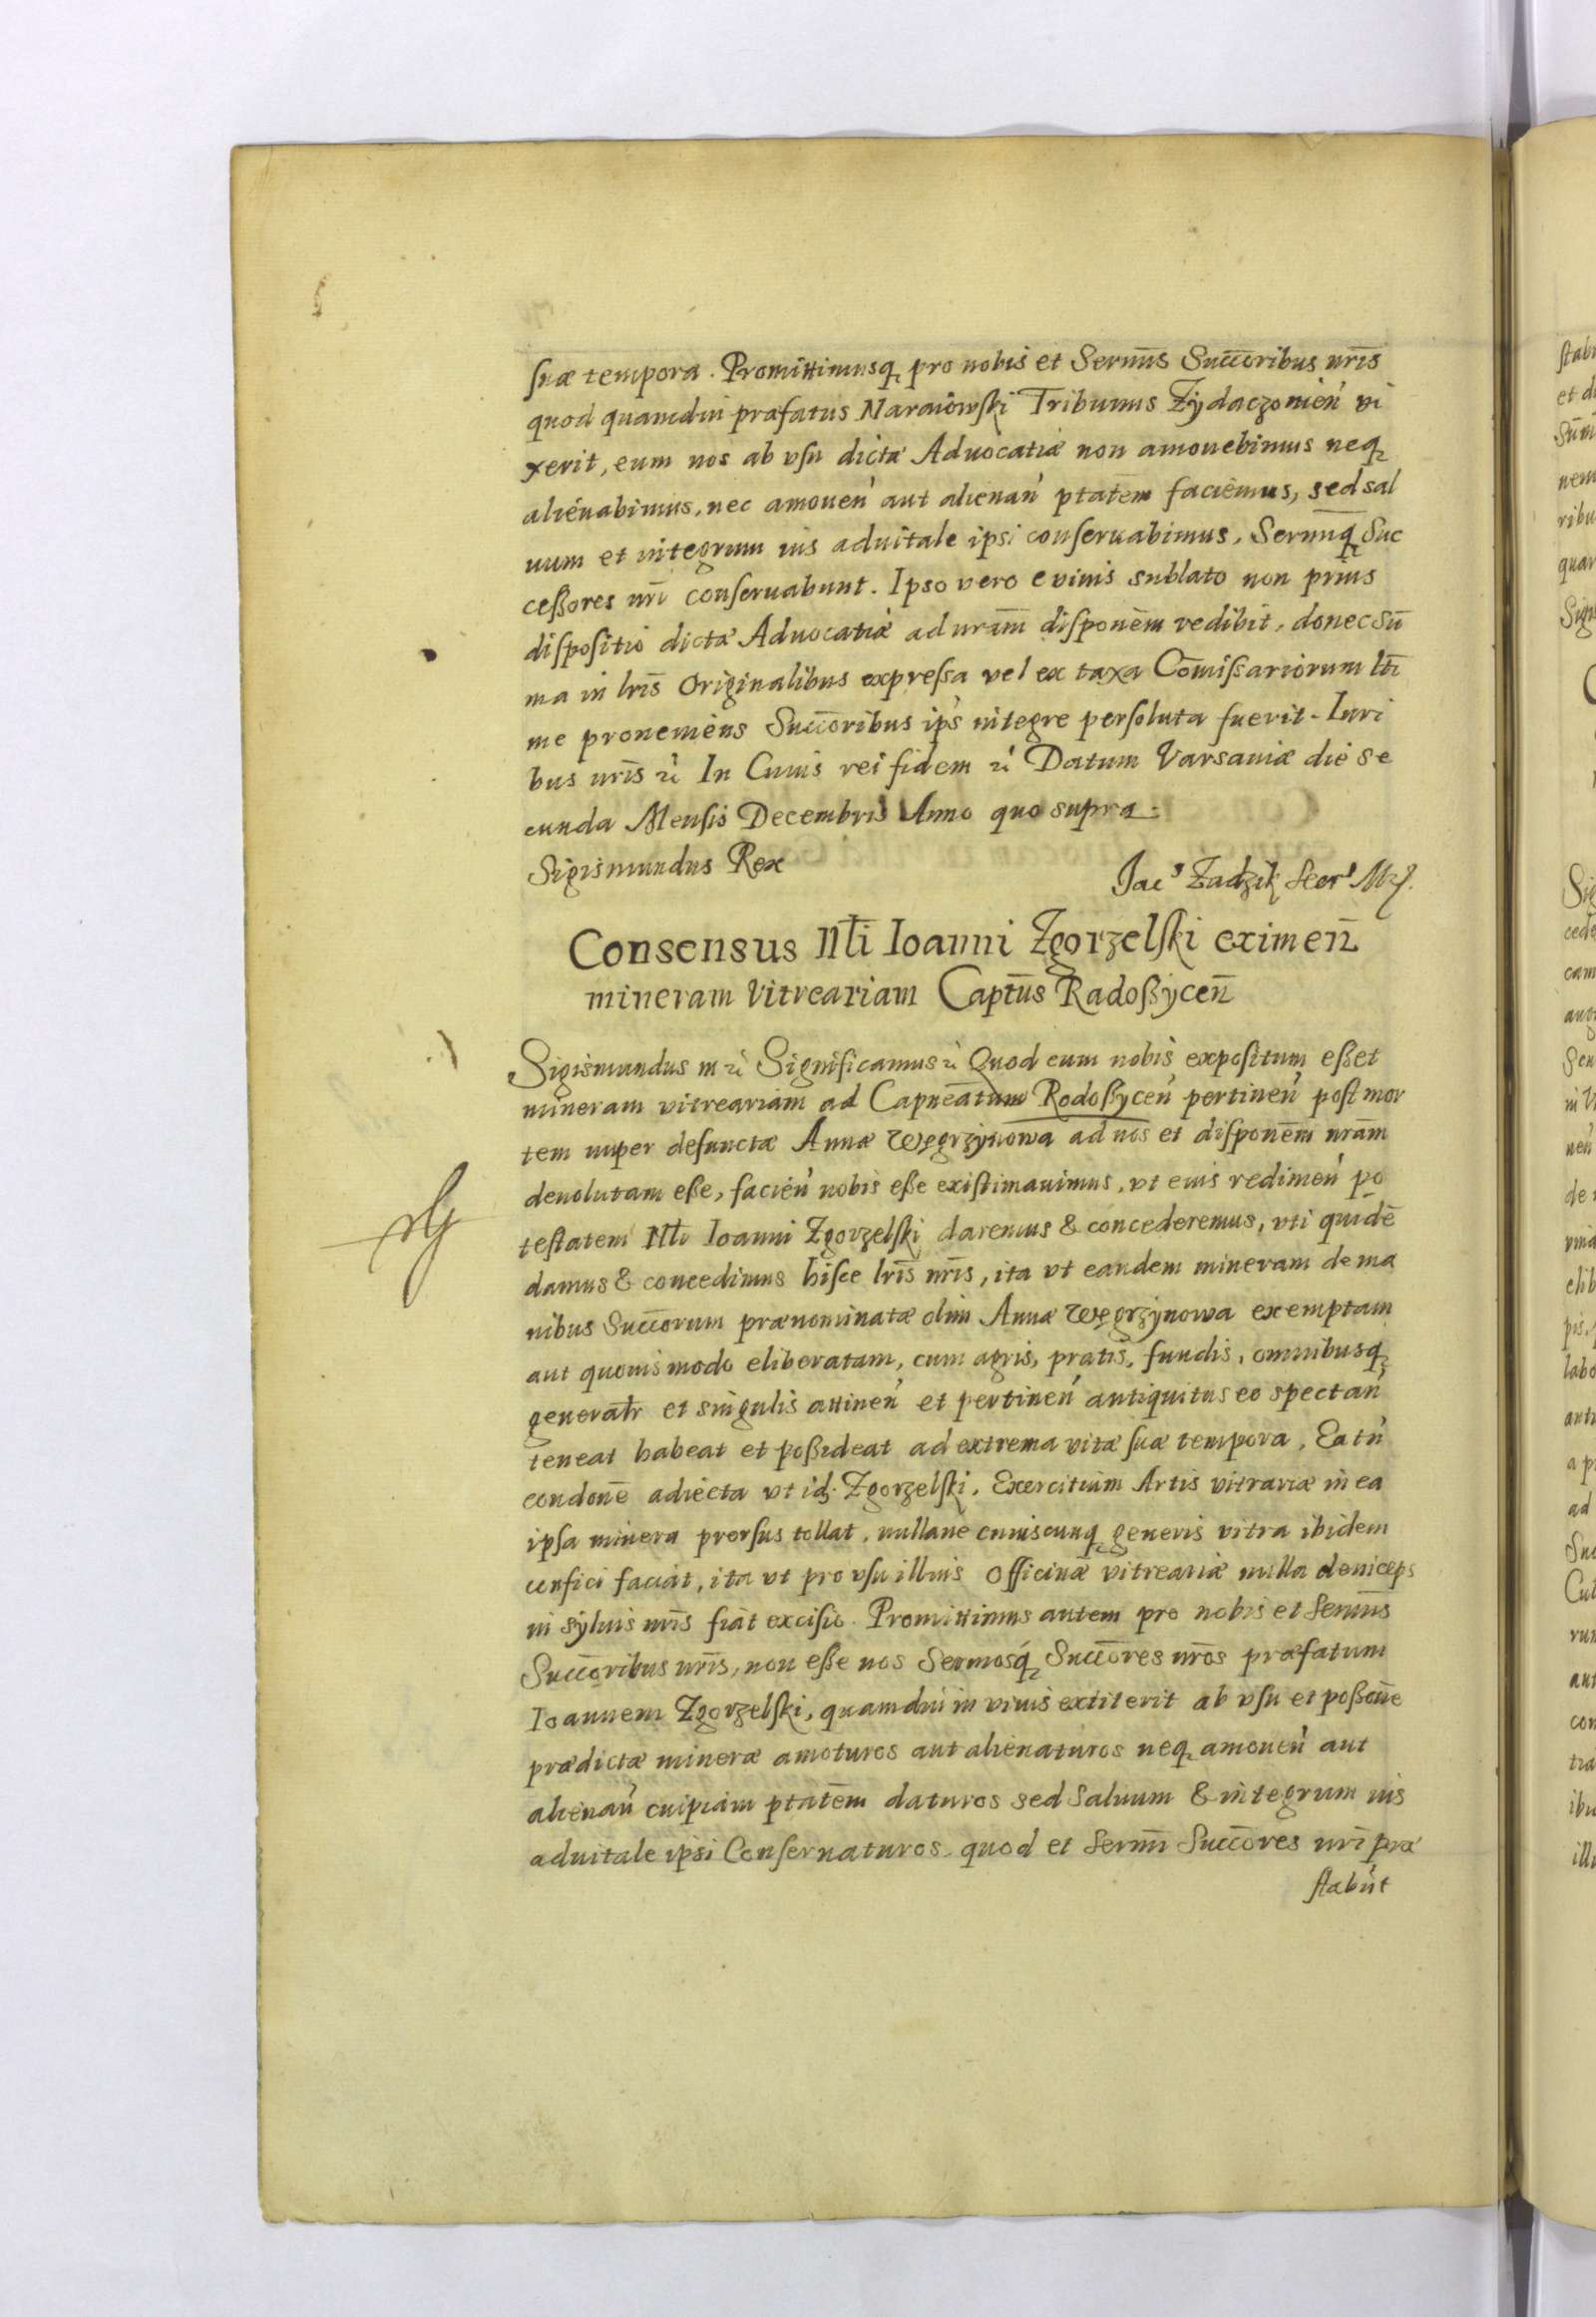 suæ tempora. Promittimusq, pro nobis et Sermīs Succōribus nrīs
quod quamdiu præfatus Naraiowski Tribunus Zÿdaczonień vi
xerit, eum nos ab vsu dictæ Aduocatiæ non amouebimus neq,
alienabimus, nec amoueń aut alienań ptatēm faciemus, sed sal
uum et integrum ius aduitale ipsi conseruabimus, Sermīq, Suc
ceßores nrī conseruabunt. Ipso vero e viuis sublato non prius
dispositio dictæ Aduocatiæ ad nrām disponēm redibit, donec Sū
ma in lrīs Originalibus expressa vel ex taxa Cōmissariorum ltī
me proueniens Succōribus ips integre persoluta fuerit. Iuri
bus nrīs ꝛc̀ In Cuius rei fidem ꝛc̀ Datum Varsauiæ die Se
cunda Mensis Decembris Anno quo supra.
Sigismundus Rex
Jacs Zadzik Secrs Mp.
Consensus Nlī Ioanni Zgorzelski eximen̄
mineram Vitreariam Captūs Radoßÿcen̄
Sigismundus m ꝛc̀ Significamus ꝛc̀ Quod cum nobis expositum eßet
mineram vitreariam ad Capneātum Rodoßÿceń pertineń post mor
tem nuper defunctæ Annæ Węgrzÿnowa ad nos et disponēm nrām
deuolutam eße, facień nobis eße existimauimus, vt eius redimeń po
testatem Nlī Ioanni Zgorzelski daremus & concederemus, vti quidē
damus & concedimus hisce lrīs nrīs, ita vt eandem mineram de ma
nibus Succōrum prænominatæ olim Annæ Węgrzÿnowa exemptam
aut quouis modo eliberatam, cum agris, pratis, fundis, omnibusq,
generalr̄ et singulis attineń et pertineń antiquitus eo spectań
teneat habeat et poßideat ad extrema vitæ suæ tempora, Ea tń
condonē adiecta vt idֽ Zgorzelski, Exercitium Artis vitrariæ in ea
ipsa minera prorsus tollat, nullane cuiuscunq, generis vitra ibidem
confici faciat, ita vt pro vsu illius Officinæ vitreariæ nulla deniceps
in syluis nrīs fiat excisio. Promittimus autem pro nobis et Sermīs
Succōribus nrīs, non eße nos Sermosq́, Succōres nrōs præfatum
Ioannem Zgorzelski, quamdiu in viuis extiterit ab vsu et poßonē
prædictæ mineræ amoturos aut alienaturos neq, amoueń aut
alienań cuipiam ptatēm daturos sed Saluum & integrum ius
aduitale ipsi Conseruaturos, quod et Sermī Succōres nrī præ
stabūt